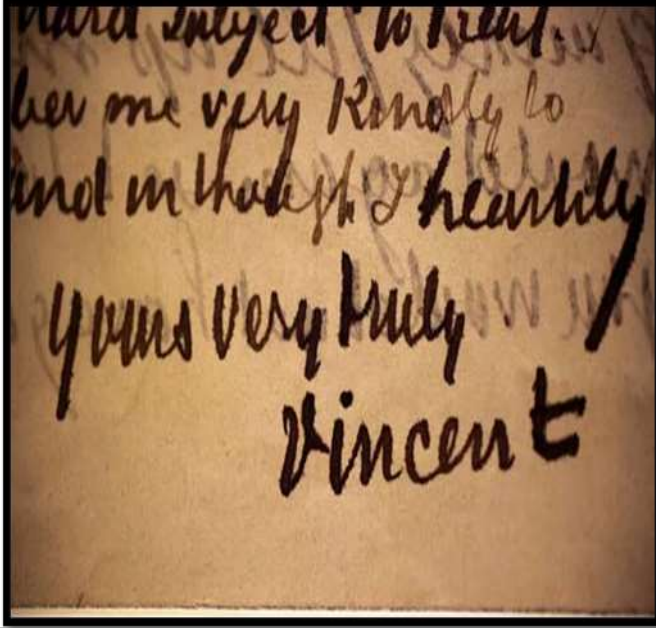 hard subject to treat.
ber me very Kindly to
and in thought I heartily
yours very truly
Vincent